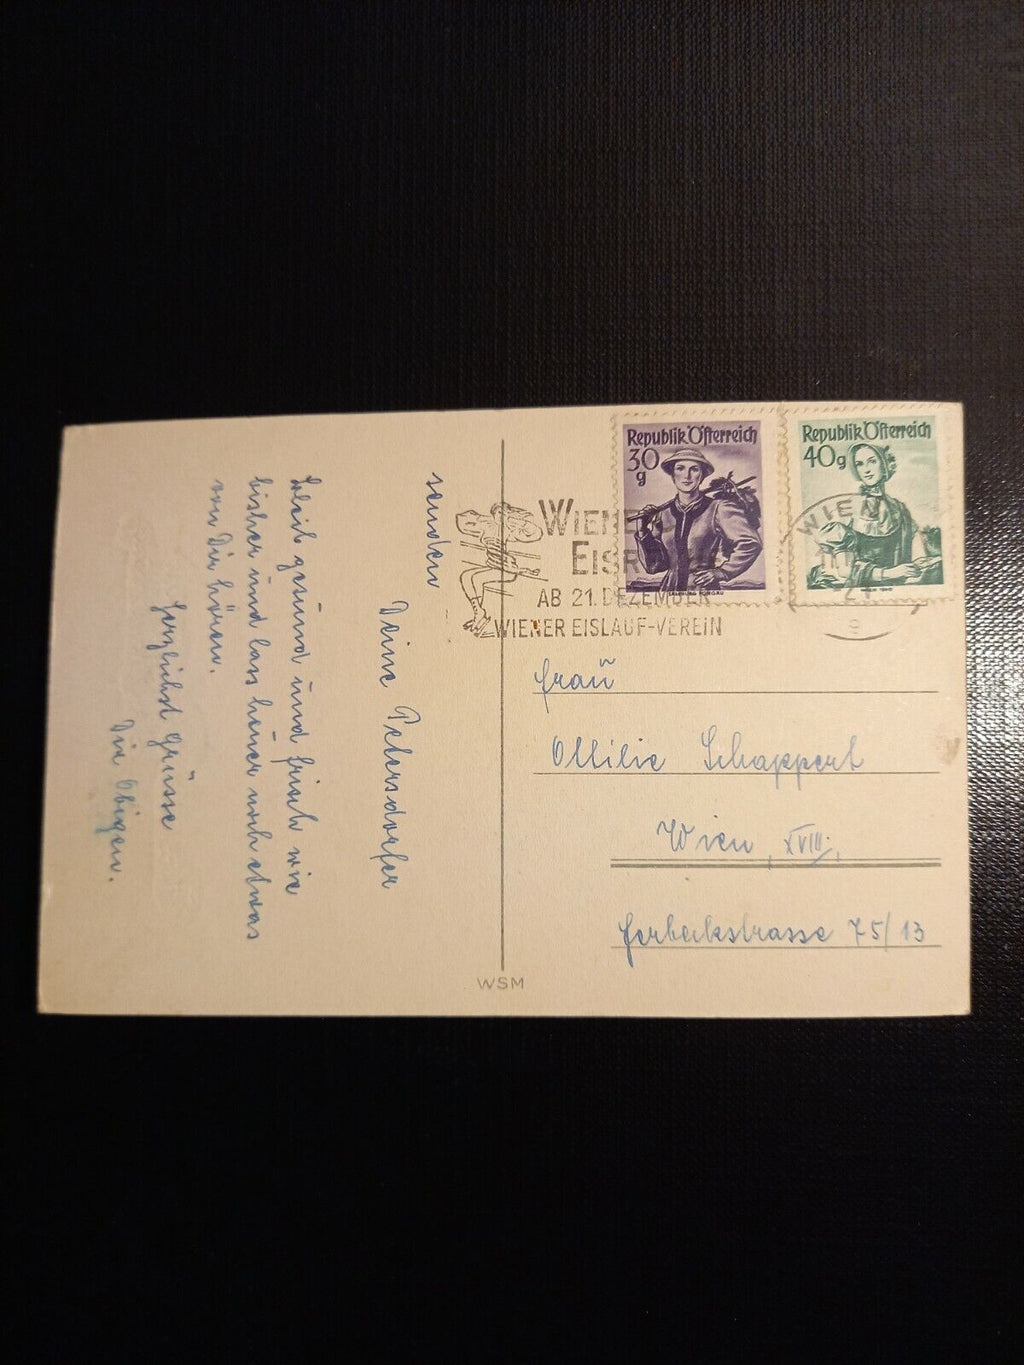 senden
Deine Petersdorfer
Bleib gesund und frisch wie
bisher und lass heuer noch etwas
von Dir hören.
Herzlichst Grüsse
Die Obigen.
Republik Österreich
30
g
Republik Österreich
40g
WIENER
EISR
AB 21. DEZEMBER
WIENER EISLAUF-VEREIN
WIEN
Frau
Ottilie Schappert
Wien, XVIII.,
Herbeckstrasse 75/13
WSM